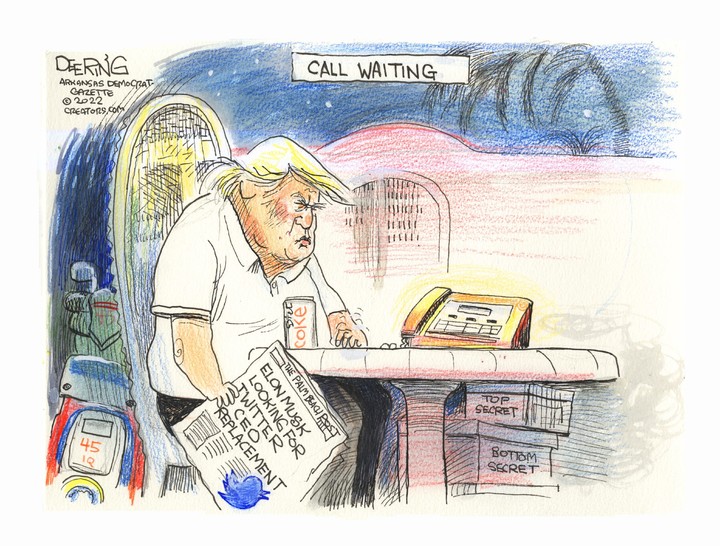 DEERING
ARKANSAS DEMOCRAT-
GAZETTE
© 2022
CREATORS.COM
CALL WAITING
DIET
COKE
THE PALM BEACH
ELON MUSK
LOOKING FOR
TWITTER
CEO
REPLACEMENT
45
IQ
TOP
SECRET
BOTTOM
SECRET